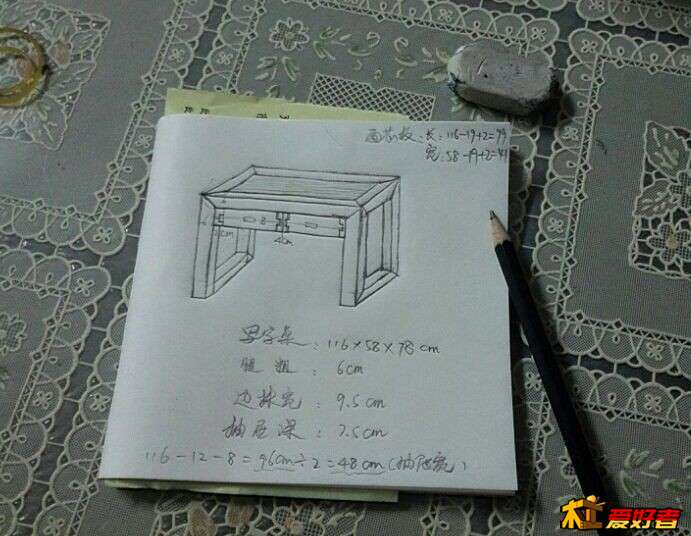 面芯板:长:116-19+2=99
宽:58-19+2=41
8
cm
写字桌:116×58×78cm
腿粗:6cm
边抹宽:9.5cm
抽屉深:7.5cm
116-12-8=96cm÷2=48cm(抽屉宽)
爱好者